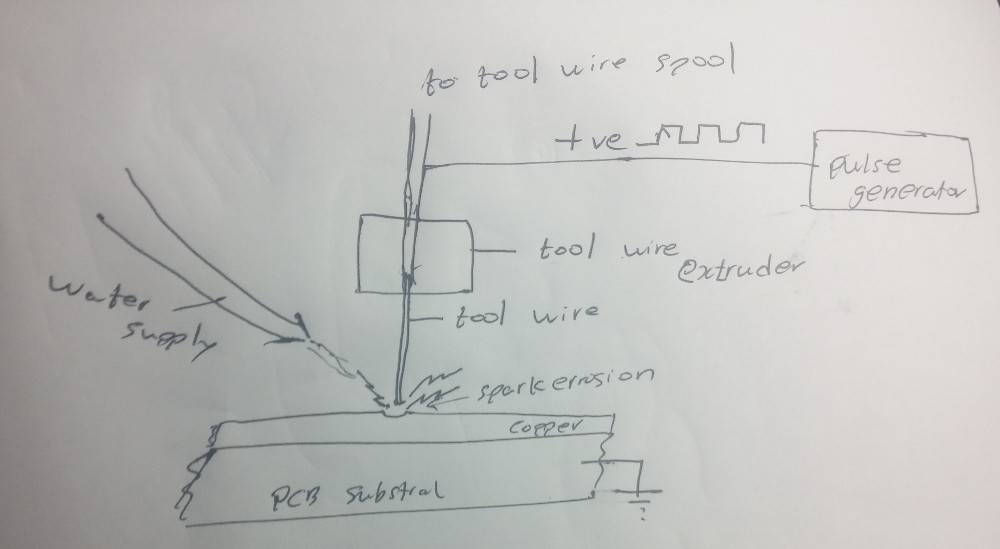 to tool wire spool
+ve
pulse
generator
tool wire
extruder
water
supply
tool wire
spark errosion
copper
PCB substral